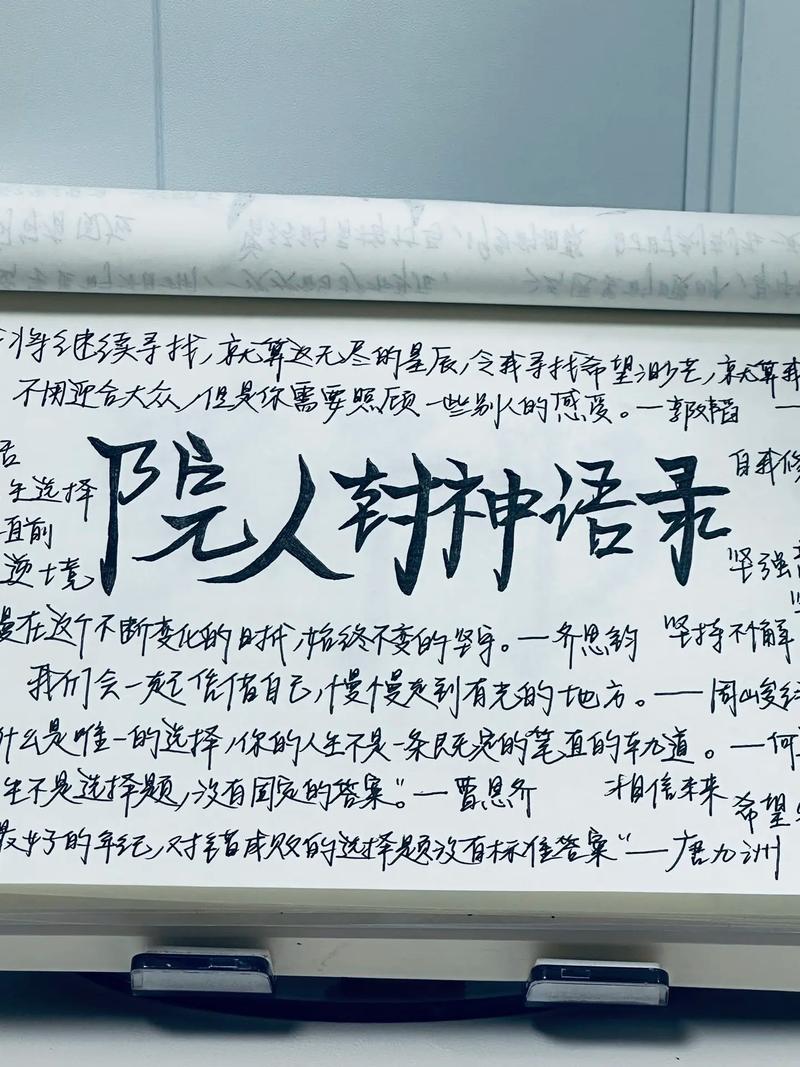 将继续寻找,就算这无尽的星辰,令我寻找希望渺茫,就算我
不用迎合大众,但是你需要照顾一些别人的感受。—郭文韬 —
自我修
生选择
直前
逆境
院人封神语录
坚强
漫在这个不断变化的时代,始终不变的坚守。—齐思钧 坚持不懈
我们会一定信偖自己,慢慢走到有光的地方。——周峻纬
什么是唯一的选择,你的人生不是一条既定的笔直的轨道。—何
生不是选择题,没有固定的答案。”—曹恩齐 相信未来
希望
最好的年纪,对错成败的选择题没有标准答案”—唐九洲